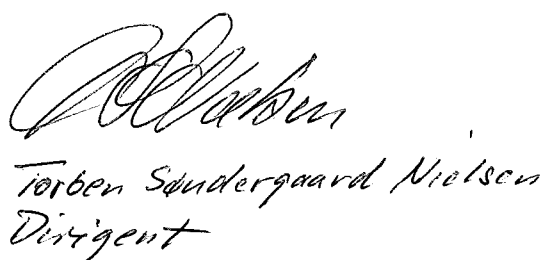 Torben Søndergaard Nielsen
Dirigent